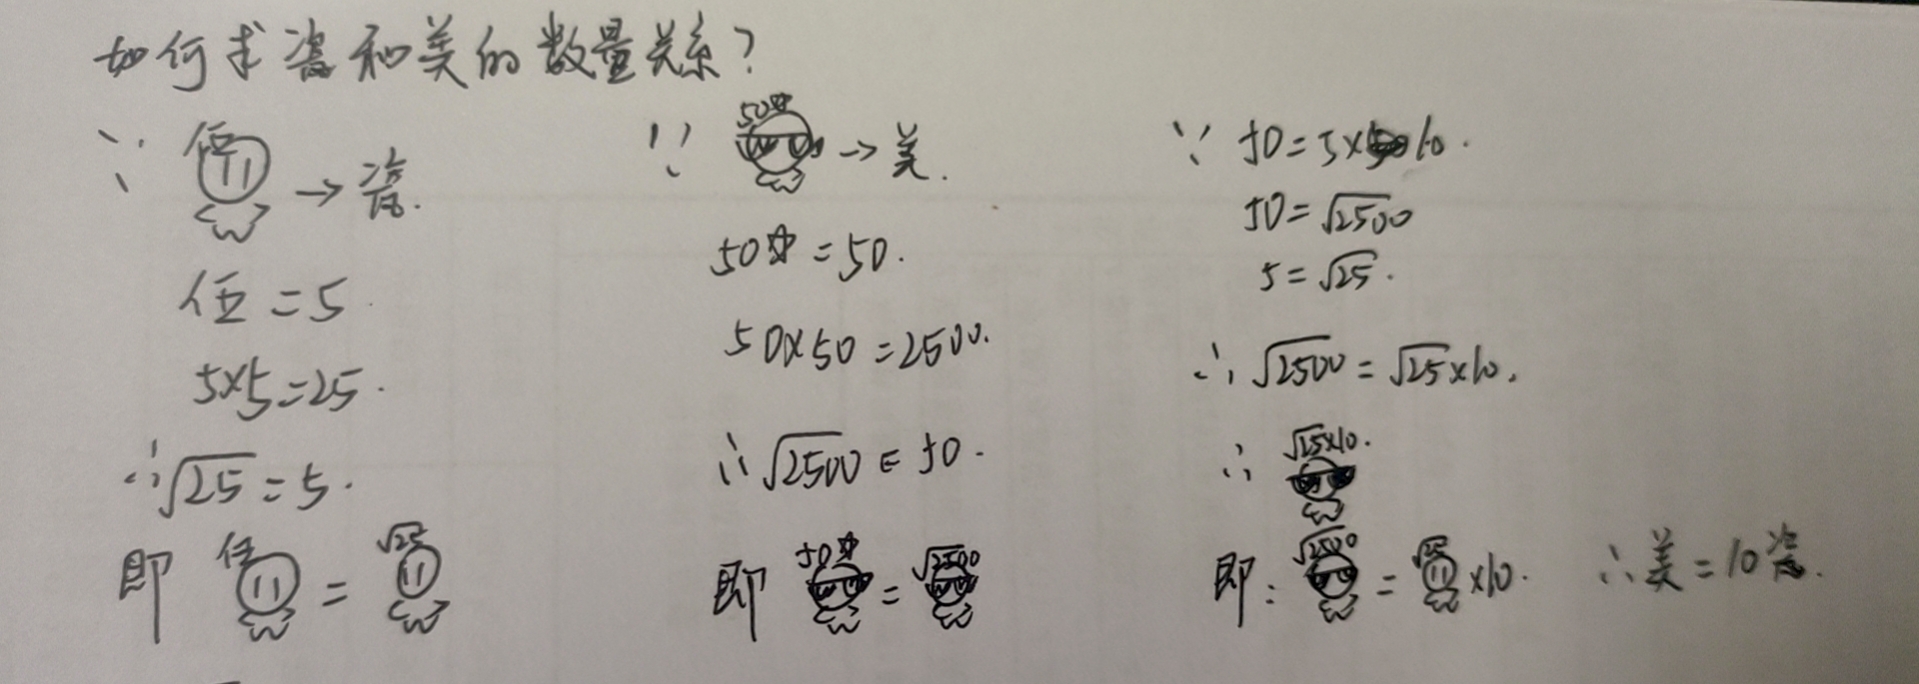 如何求瓷和美的数量关系?
∵ 伍 → 瓷.
伍 = 5
5×5=25.
∴√25 = 5.
即 伍 = √25
∵ 50 → 美.
50 = 50.
50×50 = 2500.
∴√2500 = 50.
即 50 = √2500
∵ 50 = 5×10.
50 = √2500
5 = √25.
∴ √2500 = √25×10.
∴ √25×10.
即: √2500 = √25 ×10. ∴美 = 10瓷.